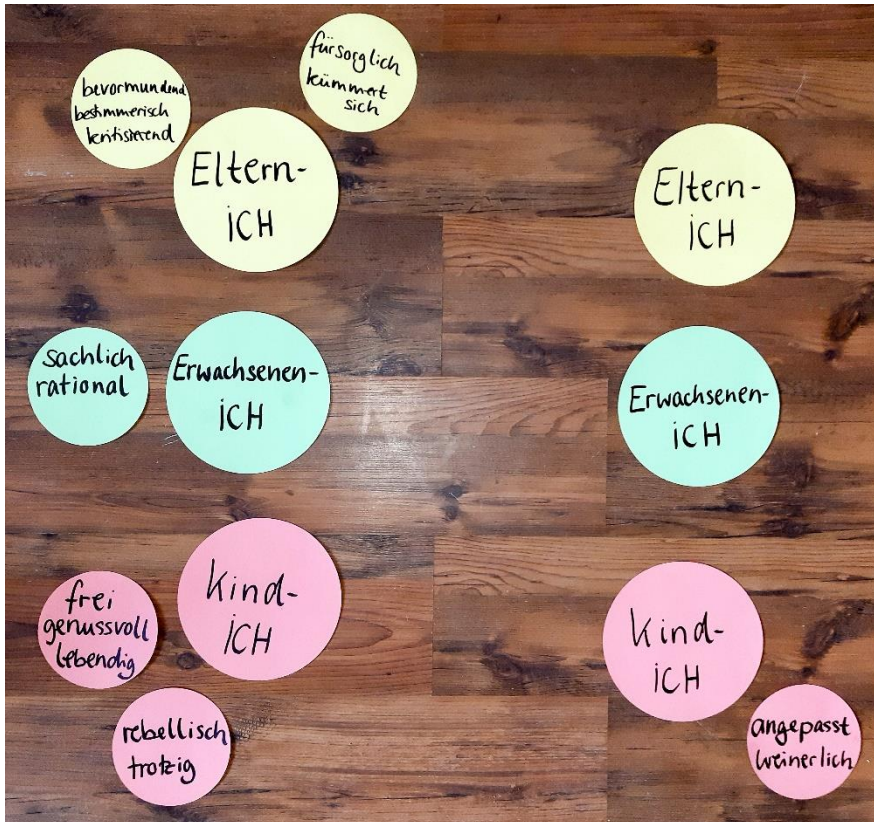 bevormundend
bestimmerisch
kritisierend
fürsorglich
kümmert
sich
Eltern-
ICH
Eltern-
ICH
sachlich
rational
Erwachsenen-
ICH
Erwachsenen-
ICH
frei
genussvoll
lebendig
Kind-
ICH
Kind-
ICH
rebellisch
trotzig
angepasst
weinerlich